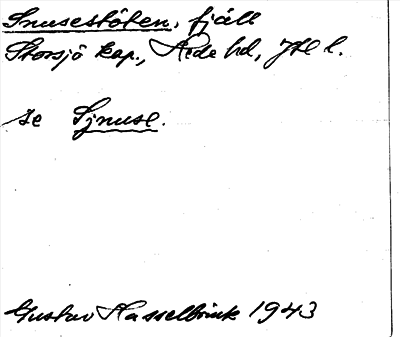 Snusestöten, fjäll
Storsjö kap., Rede hd, Jtl l.
se Sjnuse.
Gustav Hasselbrink 1943